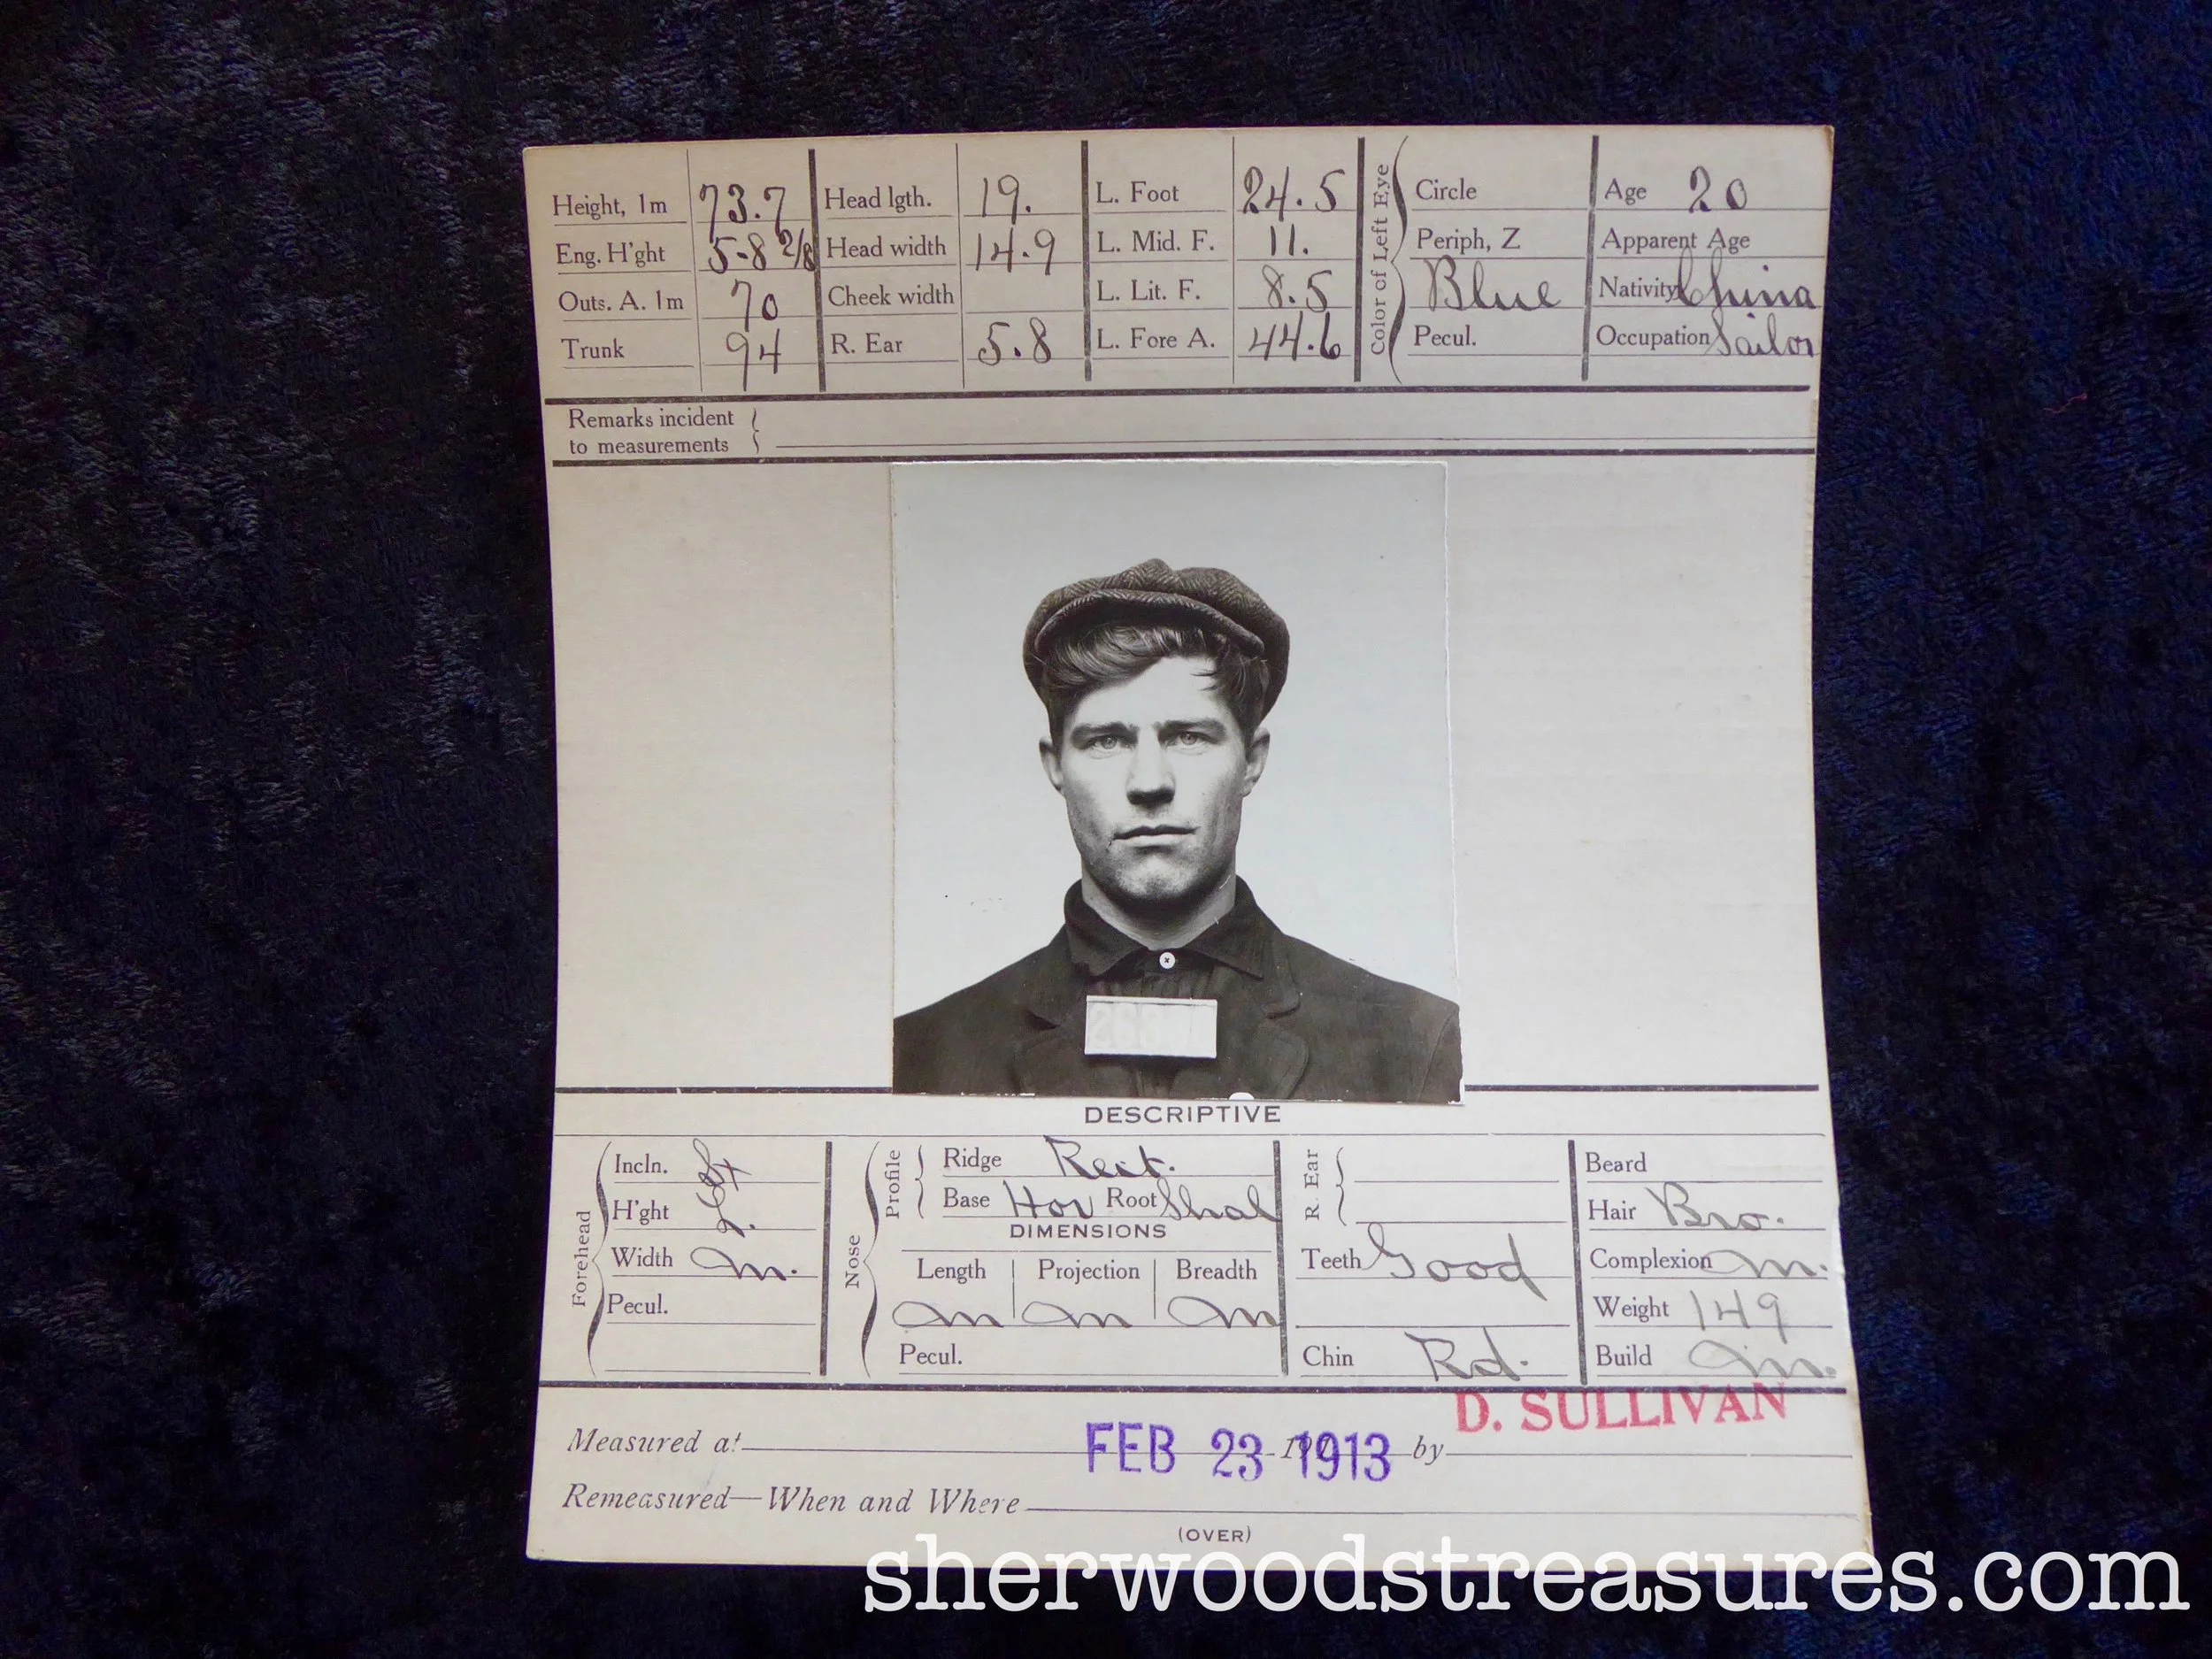 Height, 1m 73.7 Head lgth. 19. L. Foot 24.5 Circle Age 20
Eng. H'ght 5-8 2/8 Head width 14.9 L. Mid. F. 11. Periph, Z Apparent Age
Outs. A. 1m 70 Cheek width L. Lit. F. 8.5 Blue Nativity China
Trunk 94 R. Ear 5.8 L. Fore A. 44.6 Pecul. Occupation Sailor
Color of Left Eye
Remarks incident
to measurements
DESCRIPTIVE
Forehead
Incln.
H'ght
Width m.
Pecul.
Nose
Profile
Ridge Rect.
Base Hor Root Shal
DIMENSIONS
Length Projection Breadth
m m m
Pecul.
R. Ear
Teeth Good
Chin Rd.
Beard
Hair Bro.
Complexion m.
Weight 149
Build m.
D. SULLIVAN
Measured at FEB 23 1913 by
Remeasured—When and Where
(OVER)
sherwoodstreasures.com